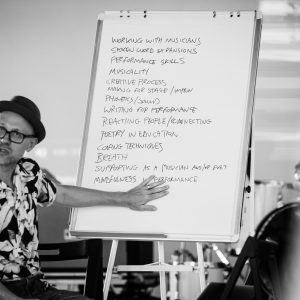 WORKING WITH MUSICIANS
SPOKEN WORD EXPANSIONS
PERFORMANCE SKILLS
MUSICALITY
CREATIVE PROCESS
MAKING FOR STAGE/
PHONETICS/SOUND
WRITING FOR PERFORMANCE
REACHING PEOPLE/CONNECTING
POETRY IN EDUCATION
COPING TECHNIQUES
BREATH
SUPPORTING AS A MUSICIAN AND/OR POET
MINDFULNESS PERFORMANCE